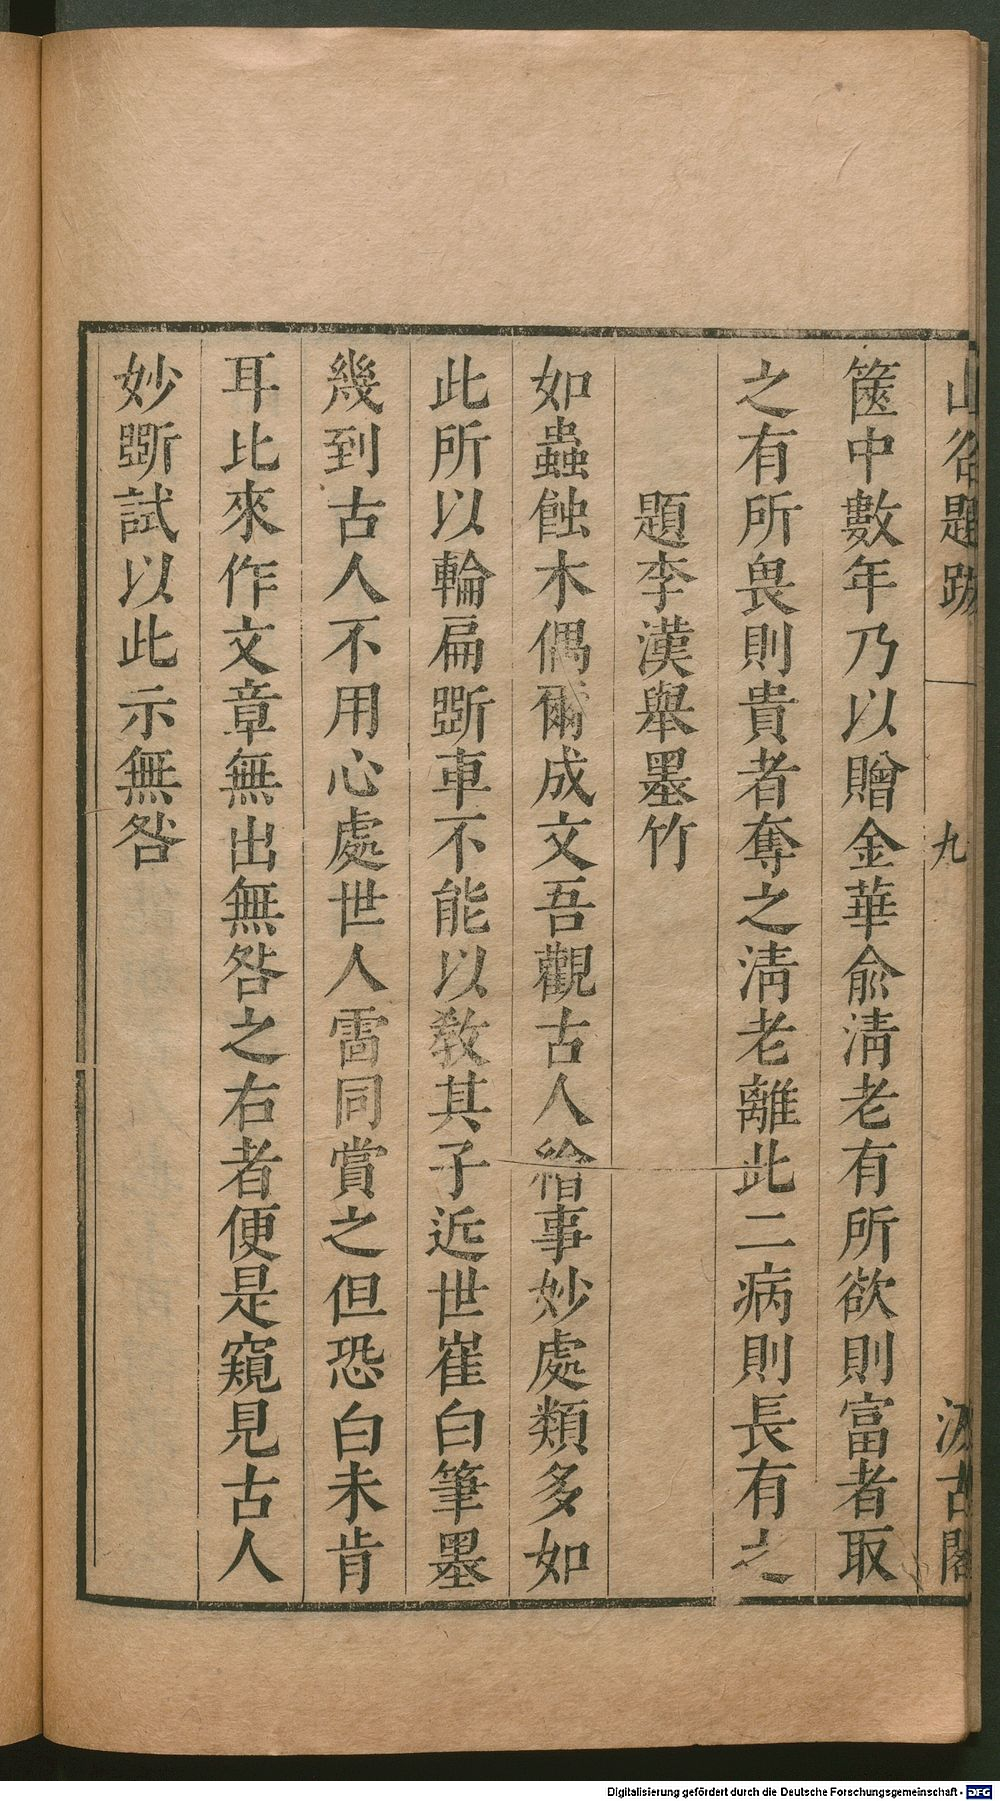 山谷題跋
九
汲古閣
篋中數年乃以贈金華兪淸老有所欲則富者取
之有所畏則貴者奪之淸老離此二病則長有之
題李漢舉墨竹
如蟲蝕木偶爾成文吾觀古人繪事妙處類多如
此所以輪扁斲車不能以敎其子近世崔白筆墨
幾到古人不用心處世人雷同賞之但恐白未肯
耳比來作文章無出無咎之右者便是窺見古人
妙斲試以此示無咎
Digitalisierung gefördert durch die Deutsche Forschungsgemeinschaft - DFG